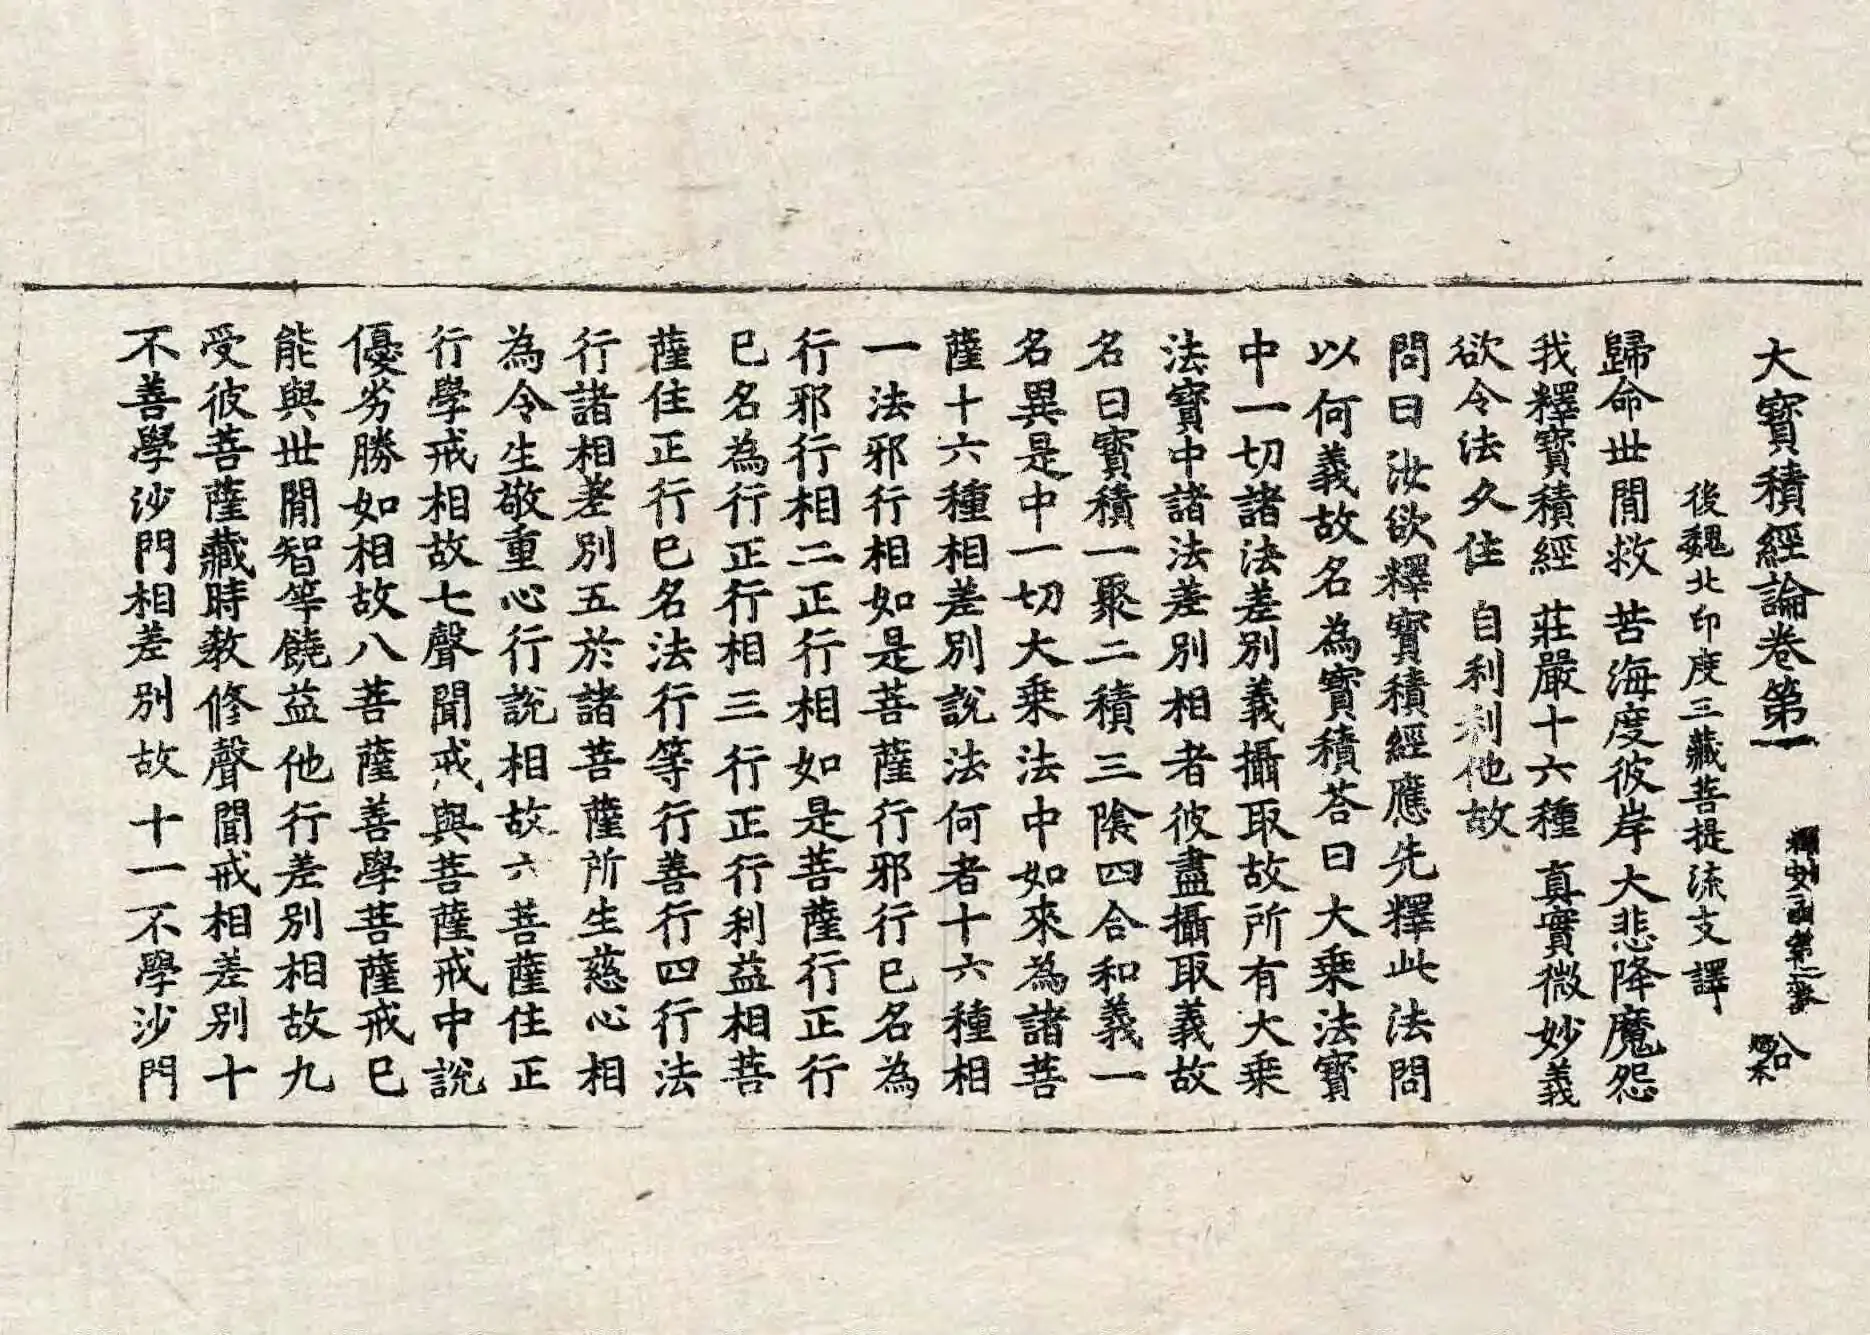 大寶積經論卷第一
後魏北印度三藏菩提流支譯
歸命世間救 苦海度彼岸大悲降魔怨
我釋寶積經 莊嚴十六種 真實微妙義
欲令法久住 自利利他故
問曰汝欲釋寶積經應先釋此法問
以何義故名為寶積荅曰大乘法寶
中一切諸法差別義攝取故所有大乘
法寶中諸法差別相者彼盡攝取義故
名曰寶積一聚二積三陰四合和義一
名異是中一切大乘法中如來為諸菩
薩十六種相差別說法何者十六種相
一法邪行相如是菩薩行邪行已名為
行邪行相二正行相如是菩薩行正行
已名為行正行相三行正行利益相菩
薩住正行已名法行等行善行四行法
行諸相差別五於諸菩薩所生慈心相
為令生敬重心行說相故六菩薩住正
行學戒相故七聲聞戒與菩薩戒中說
優劣勝如相故八菩薩善學菩薩戒已
能與世間智等饒益他行差別相故九
受彼菩薩藏時教修聲聞戒相差別十
不善學沙門相差別故十一不學沙門